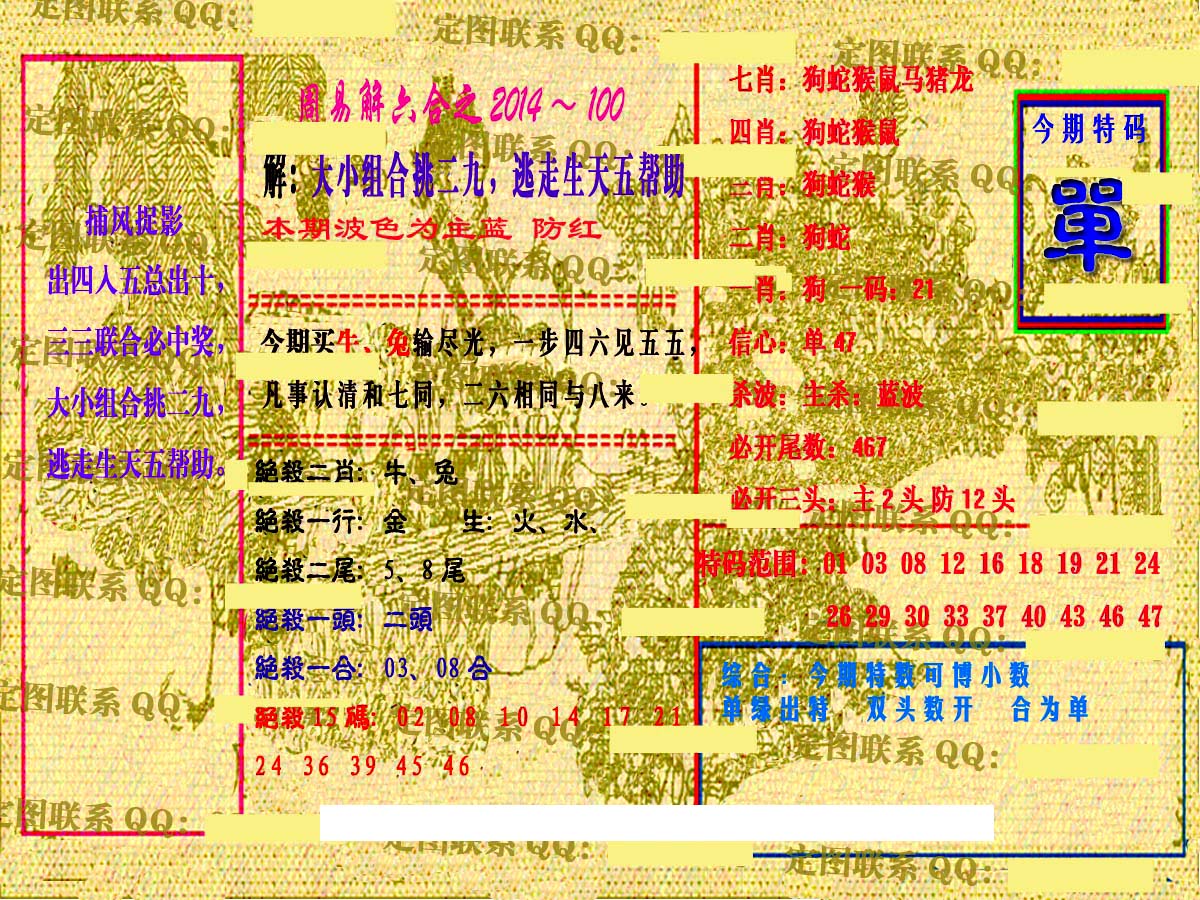 周易解六合之2014～100
解：大小组合挑二九，逃走生天五帮助
本期波色为主蓝 防红
捕风捉影
出四入五总出十，
三三联合必中奖，
大小组合挑二九，
逃走生天五帮助。
今期买牛、兔输尽光，一步四六见五五，
凡事认清和七同，二六相同与八来。
絕殺二肖：牛、兔
絕殺一行：金 生：火、水、
絕殺二尾：5、8尾
絕殺一頭：二頭
絕殺一合：03、08合
絕殺15碼：02 08 10 14 17 21
24 36 39 45 46
七肖：狗蛇猴鼠马猪龙
四肖：狗蛇猴鼠
三肖：狗蛇猴
二肖：狗蛇
一肖：狗 一码：21
信心：单47
杀波：主杀：蓝波
必开尾数：467
必开三头：主2头防12头
今期特码
單
特码范围：01 03 08 12 16 18 19 21 24
26 29 30 33 37 40 43 46 47
综合：今期特数可博小数
单绿出特 双头数开 合为单
定图联系QQ：
定图联系QQ：
定图联系QQ：
定图联系QQ：
定图联系QQ：
定图联系QQ：
定图联系QQ：
定图联系QQ：